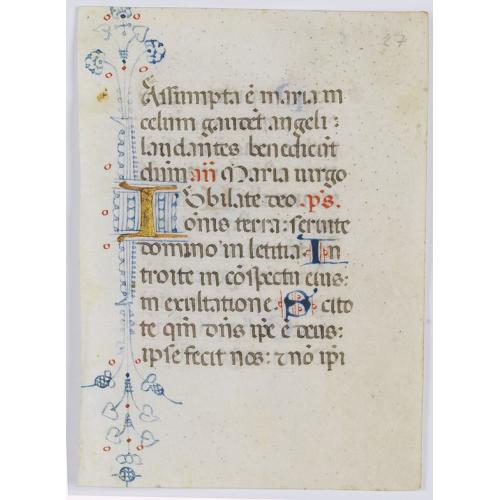 27
Assumpta ē maria in
celum gaudēt angeli:
laudantes benedicūt
dūm an̄ Maria uirgo
Iubilate deo p̄s.
omnis terra: seruite
domino in letitia In
troite in cōspectu eius:
in exultatione Scito
te qm̄ dn̄s ip̄e ē deus:
ipse fecit nos: ⁊ nō ipi